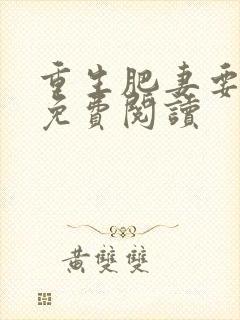 重生肥妻要
免費閱讀
黃雙雙